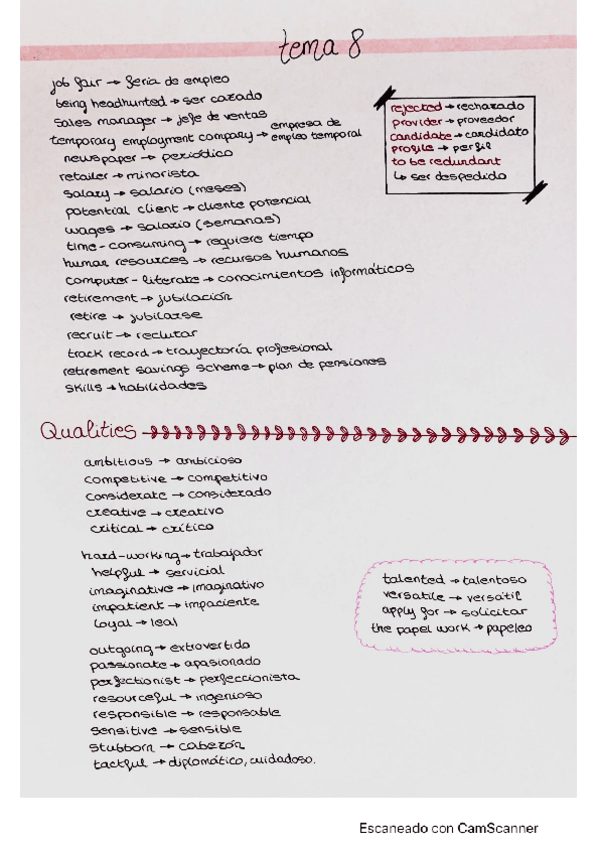 tema 8
job fair → feria de empleo
being headhunted → ser cazado
sales manager → jefe de ventas
temporary employment company → empresa de empleo temporal
newspaper → periódico
retailer → minorista
salary → salario (meses)
potential client → cliente potencial
wages → salario (semanas)
time-consuming → requiere tiempo
human resources → recursos humanos
computer-literate → conocimientos informáticos
retirement → jubilación
retire → jubilarse
recruit → reclutar
track record → trayectoría profesional
retirement savings scheme → plan de pensiones
skills → habilidades
rejected → rechazado
provider → proveedor
candidate → candidato
profile → perfil
to be redundant
↳ ser despedido
Qualities
ambitious → ambicioso
competitive → competitivo
considerate → considerado
creative → creativo
critical → crítico
hard-working → trabajador
helpful → servicial
imaginative → imaginativo
impatient → impaciente
loyal → leal
outgoing → extrovertido
passionate → apasionado
perfectionist → perfeccionista
resourceful → ingenioso
responsible → responsable
sensitive → sensible
stubborn → cabezón
tactful → diplomático, cuidadoso.
talented → talentoso
versatile → versátil
apply for → solicitar
the papel work → papeleo
Escaneado con CamScanner